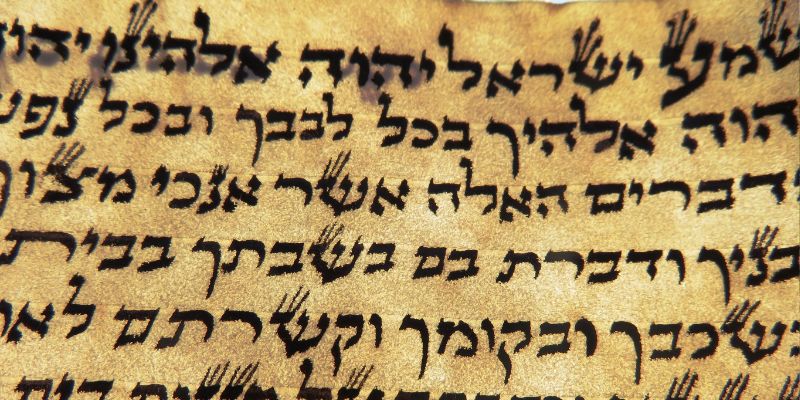 שמע ישראל יהוה אלהינו יהוה
הוה אלהיך בכל לבבך ובכל נפש
הדברים האלה אשר אנכי מצוך
בניך ודברת בם בשבתך בבית
בשכבך ובקומך וקשרתם לאו